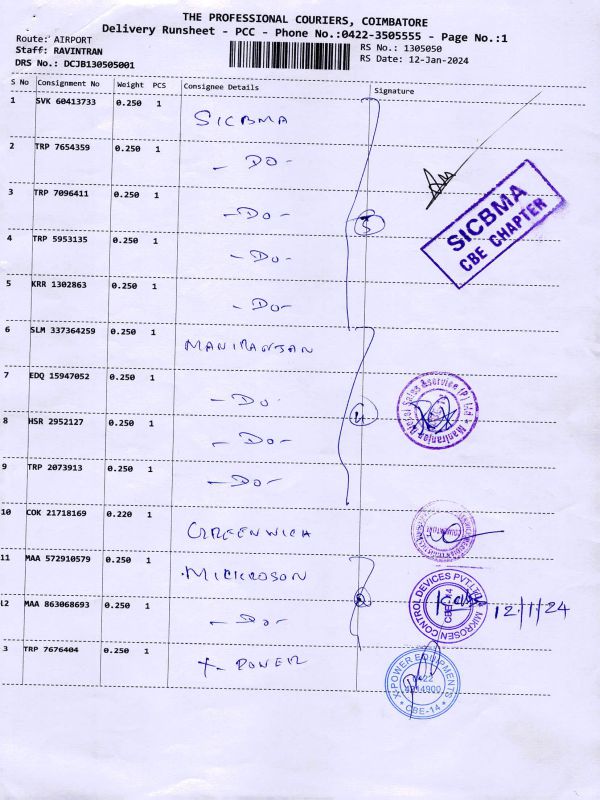 THE PROFESSIONAL COURIERS, COIMBATORE
Delivery Runsheet - PCC - Phone No.:0422-3505555 - Page No.:1
Route: AIRPORT
Staff: RAVINTRAN
DRS No.: DCJB130505001
RS No.: 1305050
RS Date: 12-Jan-2024
S No Consignment No Weight PCS Consignee Details Signature
1 SVK 60413733 0.250 1 SICBMA
2 TRP 7654359 0.250 1 - DO -
3 TRP 7096411 0.250 1 - DO - 5
4 TRP 5953135 0.250 1 - DO -
5 KRR 1302863 0.250 1 - DO -
SICBMA
CBE CHAPTER
6 SLM 337364259 0.250 1 MANIRANJAN
7 EDQ 15947052 0.250 1 - DO -
8 HSR 2952127 0.250 1 - DO - 4
9 TRP 2073913 0.250 1 - DO -
Maniranjan Diesel Sales & Service (P) Ltd
10 COK 21718169 0.220 1 GREENWICH
COIMBATORE
11 MAA 572910579 0.250 1 MICKROSON
12 MAA 863068693 0.250 1 - DO -
MIKROSEN CONTROL DEVICES PVT.LTD.
CBE-14
12/1/24
3 TRP 7676404 0.250 1 X-POWER
X-POWER EQUIPMENTS
0422
CBE-14